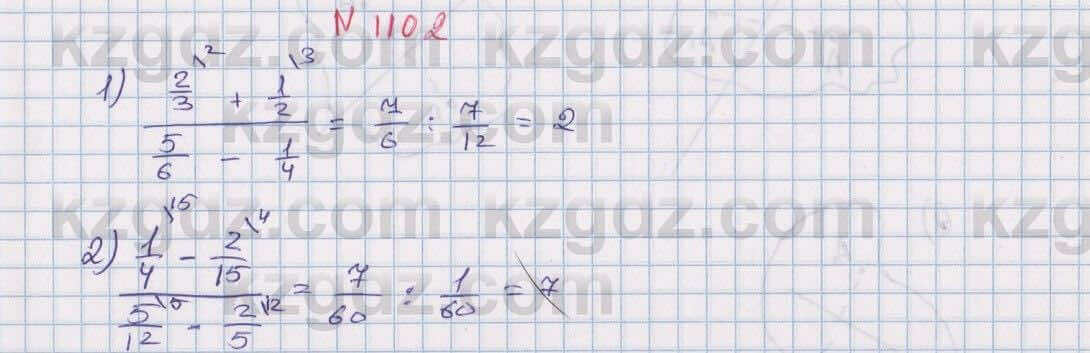 N 1102
1) (2/3 \2 + 1/2 \3) / (5/6 - 1/4) = 7/6 : 7/12 = 2
2) (1/4 \15 - 2/15 \4) / (5/12 \5 - 2/5 \12) = 7/60 : 1/60 = 7
kzgdz.com kzgdz.com kzg
kzgdz.com
kzgdz.com kzgdz.com kzg
kzgdz.com